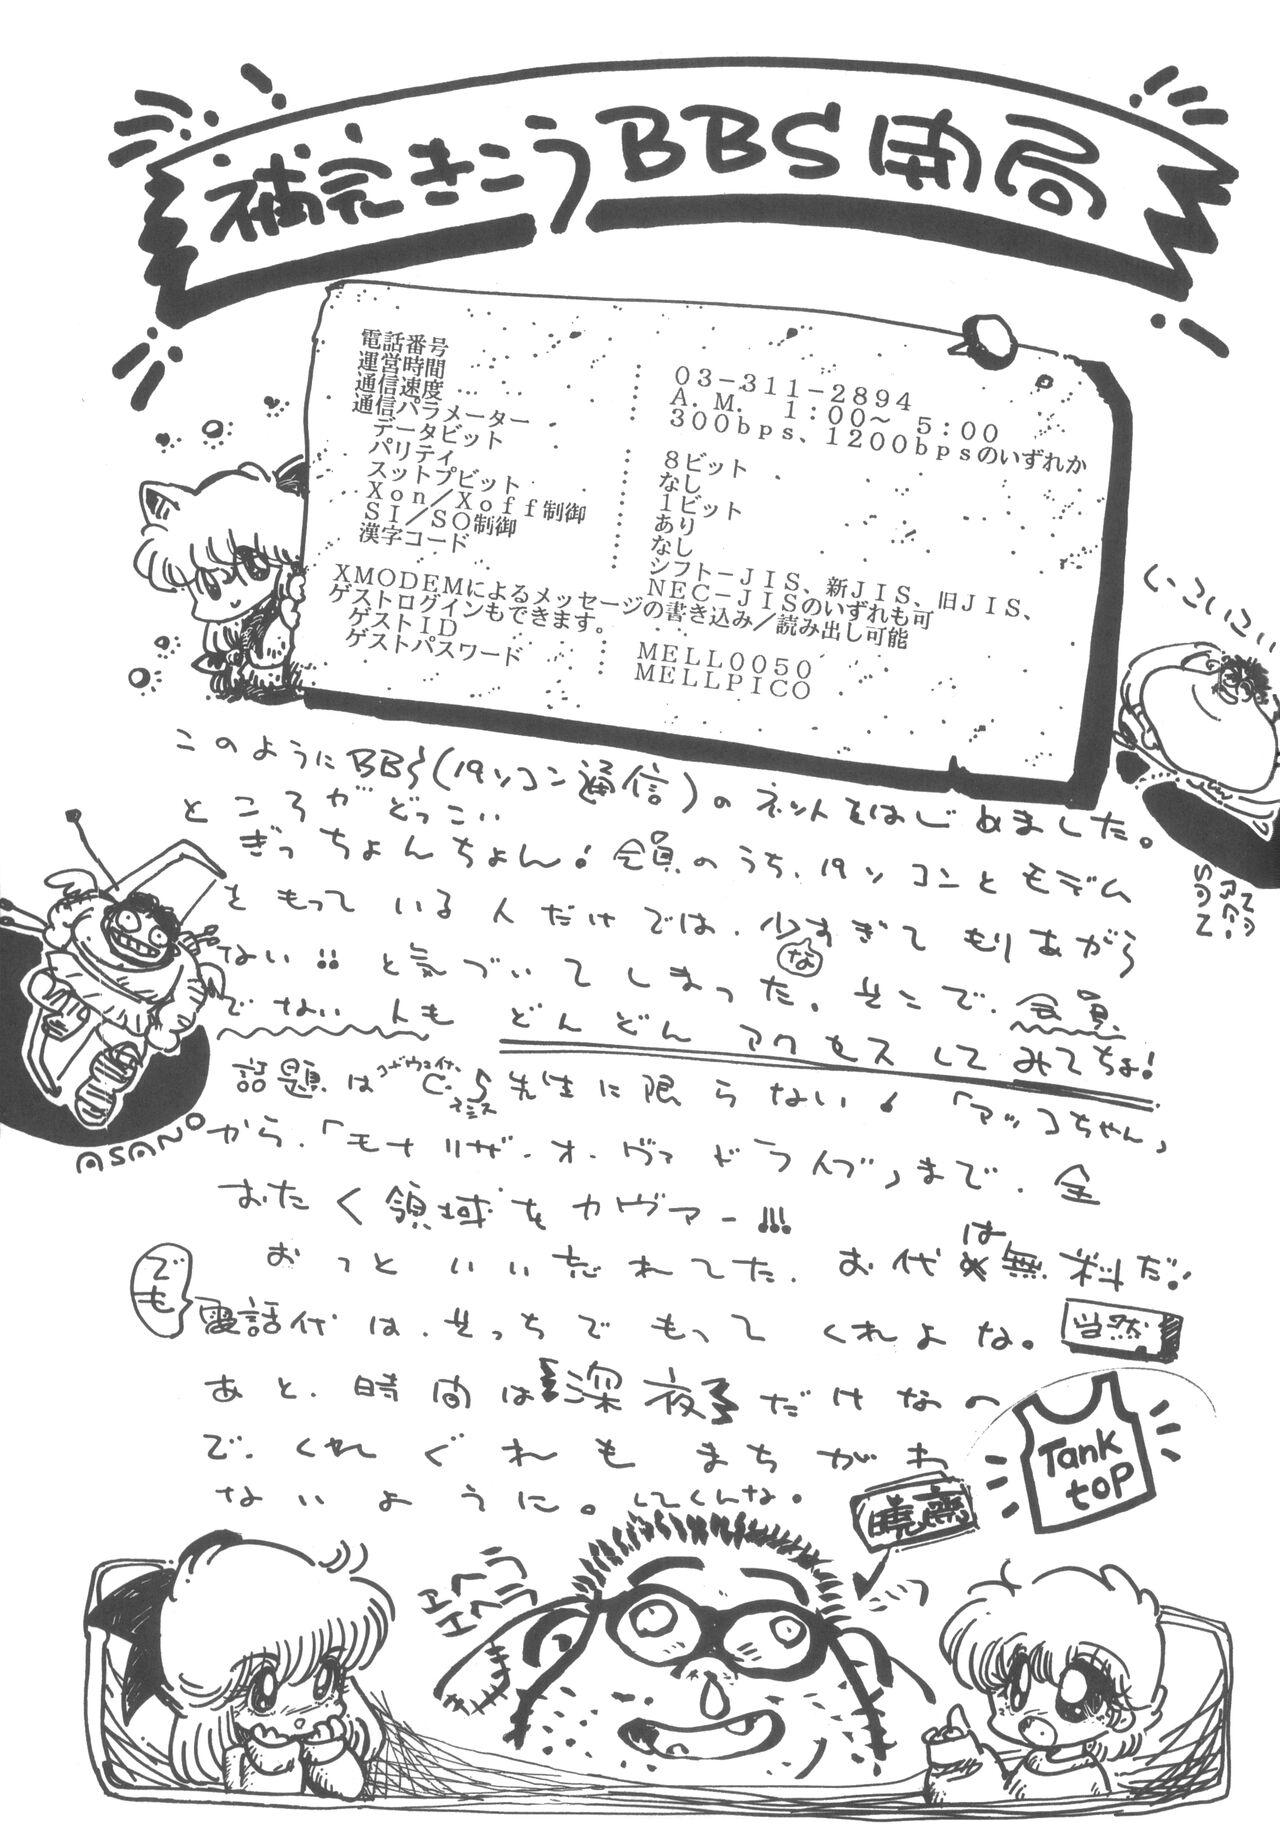 補完きこうBBS開局
電話番号 : 03-311-2894
運営時間 : A.M. 1:00～5:00
通信速度 : 300bps、1200bpsのいずれか
通信パラメーター
データビット : 8ビット
パリティ : なし
スットプビット : 1ビット
Xon/Xoff制御 : あり
SI/SO制御 : なし
漢字コード : シフト-JIS、新JIS、旧JIS、
NEC-JISのいずれも可
XMODEMによるメッセージの書き込み/読み出し可能
ゲストログインもできます。
ゲストID : MELL0050
ゲストパスワード : MELLPICO
このようにBBS(パソコン通信)のネットをはじめました。
ところがどっこい
ぎっちょんちょん!会員のうち、パソコンとモデム
をもっている人だけでは、少なすぎてもりあがら
ない!!と気づいてしまった。そこで、会員
でない人もどんどんアクセスしてみてちょ!
話題はC.S先生に限らない!「アッコちゃん」
から、「モナリザ・オ・ヴァドライブ」まで、全
おたく領域をカヴァー!!!
おっといい忘れてた、お代は無料だ!
でも
電話代は、そっちでもってくれよな。
当然
あと、時間は深夜だけなの
で、くれぐれもまちがわ
ないように。してくんな。
Tank
top
ASANO
エヘラ
エヘラ